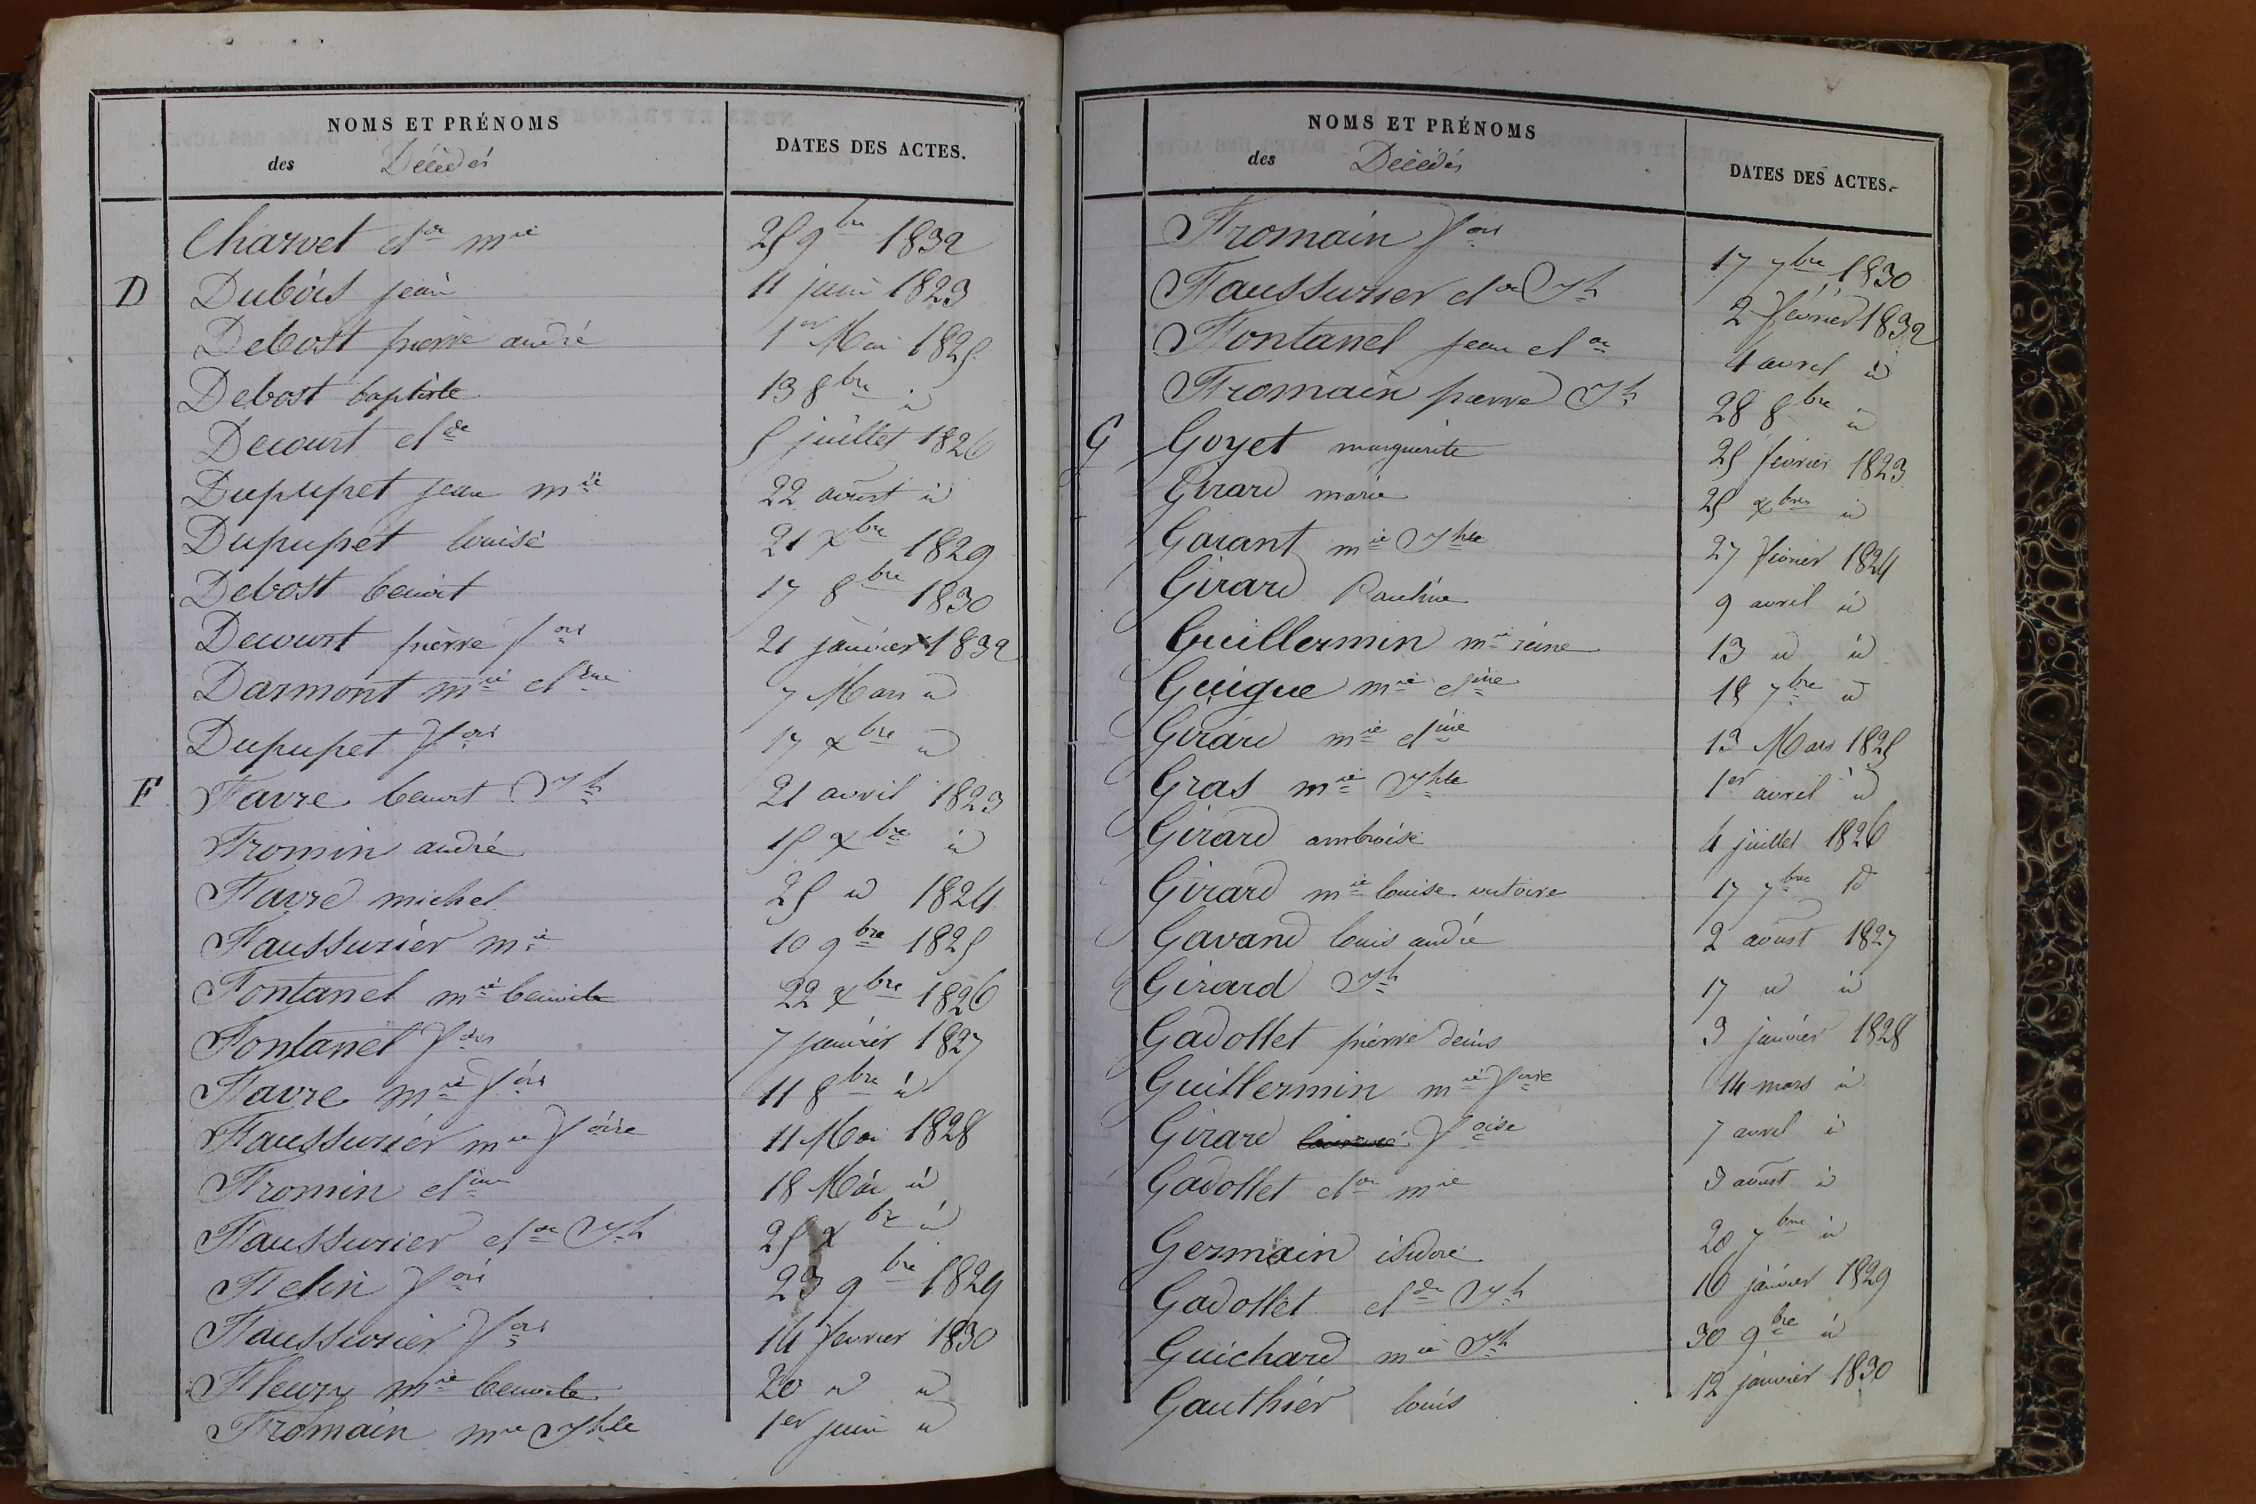 NOMS ET PRÉNOMS
des Décédés
DATES DES ACTES.
Charvet clde mrie 25 9bre 1832
D Dubois jean 11 juin 1823
Debost pierre andré 1er Mai 1825
Debost baptiste 13 8bre id
Decourt clde 5 juillet 1826
Dupupet jean mrie 22 aoust id
Dupupet louise 21 xbre 1829
Debost benoit 17 8bre 1830
Decourt pierre fois 21 janvier 1832
Darmont mrie cldine 7 Mars id
Dupupet fois 17 xbre id
F Favre benoit Jh 21 avril 1823
Fromin andré 15 xbre id
Favre michel 25 id 1824
Faussurier mie 10 9bre 1825
Fontanel mrie benoite 22 xbre 1826
Fontanel fois 7 janvier 1827
Favre mrie fois 11 8bre id
Faussurier mrie foise 11 Mai 1828
Fromin cldine 18 Mai id
Faussurier clde Jh 25 xbre id
Felin fois 23 9bre 1829
Faussurier fois 14 fevrier 1830
Fleury mrie benoite 20 id id
Fromain mrie Jhte 1er juin id
NOMS ET PRÉNOMS
des Décédés
DATES DES ACTES.
Fromain fois 17 7bre 1830
Faussurier clde Jh 2 février 1832
Fontanel jean clde 4 avril id
Fromain pierre Jh 28 8bre id
G Goyet marguerite 25 fevrier 1823
Girard marie 25 xbre id
Garant mie Jhte 27 fevrier 1824
Girard Pauline 9 avril id
Guillermin mie reine 13 id id
Guigue mrie cldine 18 7bre id
Girard mrie cldine 13 Mars 1825
Gras mrie Jhte 1er avril id
Girard ambroise 4 juillet 1826
Girard mrie louise victoire 17 7bre id
Gavand louis andré 2 aoust 1827
Girard Jh 17 id id
Gadollet pierre denis 3 janvier 1828
Guillermin mrie foise 14 mars id
Girard foise 7 avril id
Gadollet clde mrie 3 aoust id
Germain isidore 20 7bre id
Gadollet clde Jh 16 janvier 1829
Guichard mrie Jh 30 9bre id
Gauthier louis 12 janvier 1830